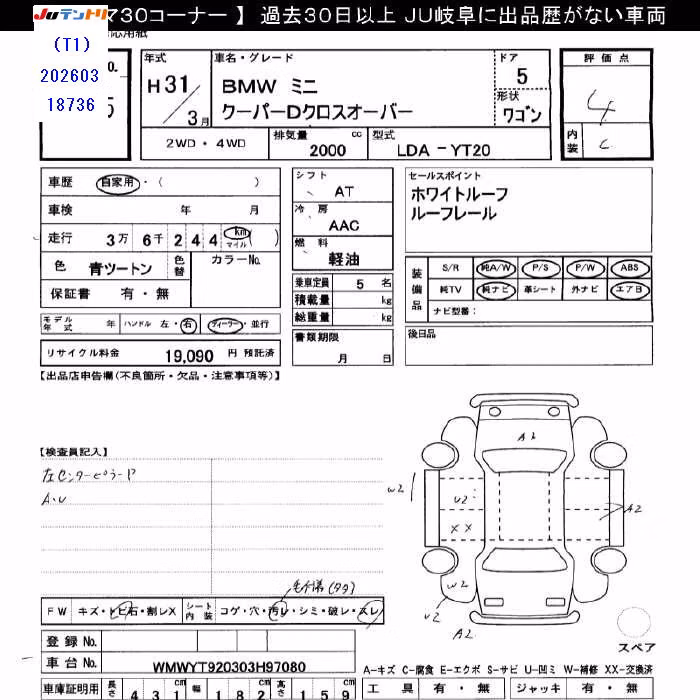 730コーナー 】 過去30日以上 JU岐阜に出品歴がない車両
JUテントリ
(T1)
202603
18736
応用紙
No.
5
年式
H 31 / 3 月
車名・グレード
BMW ミニ
クーパーDクロスオーバー
ドア
5
形状
ワゴン
評価点
4
内装
C
2WD・4WD
排気量
2000 cc
型式
LDA - YT20
車歴 自家用・( )
車検 年 月
走行 3万 6千 2 4 4 km マイル ( )
色 青ツートン
色替
カラーNo.
保証書 有・無
シフト
AT
冷房
AAC
燃料
軽油
乗車定員 5 名
積載量 kg
総重量 kg
セールスポイント
ホワイトルーフ
ルーフレール
装備品
S/R 純A/W P/S P/W ABS
純TV 純ナビ 革シート 外ナビ エアB
ナビ型番:
モデル年式 年 ハンドル 左・右 ディーラー・並行
書類期限
月 日
後日品
リサイクル料金 19,090 円 預託済
【出品店申告欄(不良箇所・欠品・注意事項等)】
【検査員記入】
左センターピラーP
A・U
A2
W2
U2
XX
A2
W2
U2
A2
スペア
FW キズ・トビ石・割レX
シート内装 コゲ・穴・汚レ・シミ・破レ・スレ
登録No.
車台No. WMWYT920303H97080
A-キズ C-腐食 E-エクボ S-サビ U-凹ミ W-補修 XX-交換済
車庫証明用 長さ 4 3 1 cm 幅 1 8 2 cm 高さ 1 5 9 cm
工具 有・無 ジャッキ 有・無